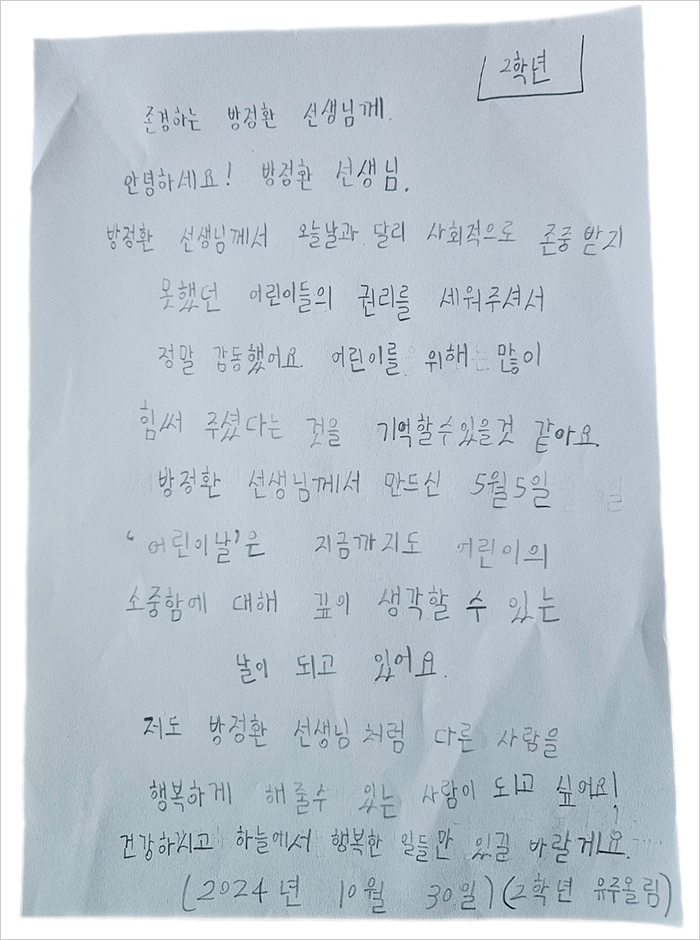 2학년
존경하는 방정환 선생님께.
안녕하세요! 방정환 선생님.
방정환 선생님께서 오늘날과 달리 사회적으로 존중 받지
못했던 어린이들의 권리를 세워주셔서
정말 감동했어요. 어린이를 위해 많이
힘써 주셨다는 것을 기억할수있을것 같아요.
방정환 선생님께서 만드신 5월5일
'어린이날'은 지금까지도 어린이의
소중함에 대해 깊이 생각할 수 있는
날이 되고 있어요.
저도 방정환 선생님 처럼 다른 사람을
행복하게 해줄수 있는 사람이 되고 싶어요!
건강하시고 하늘에서 행복한 일들만 있길 바랄게요.
(2024년 10월 30일)(2학년 유주올림)